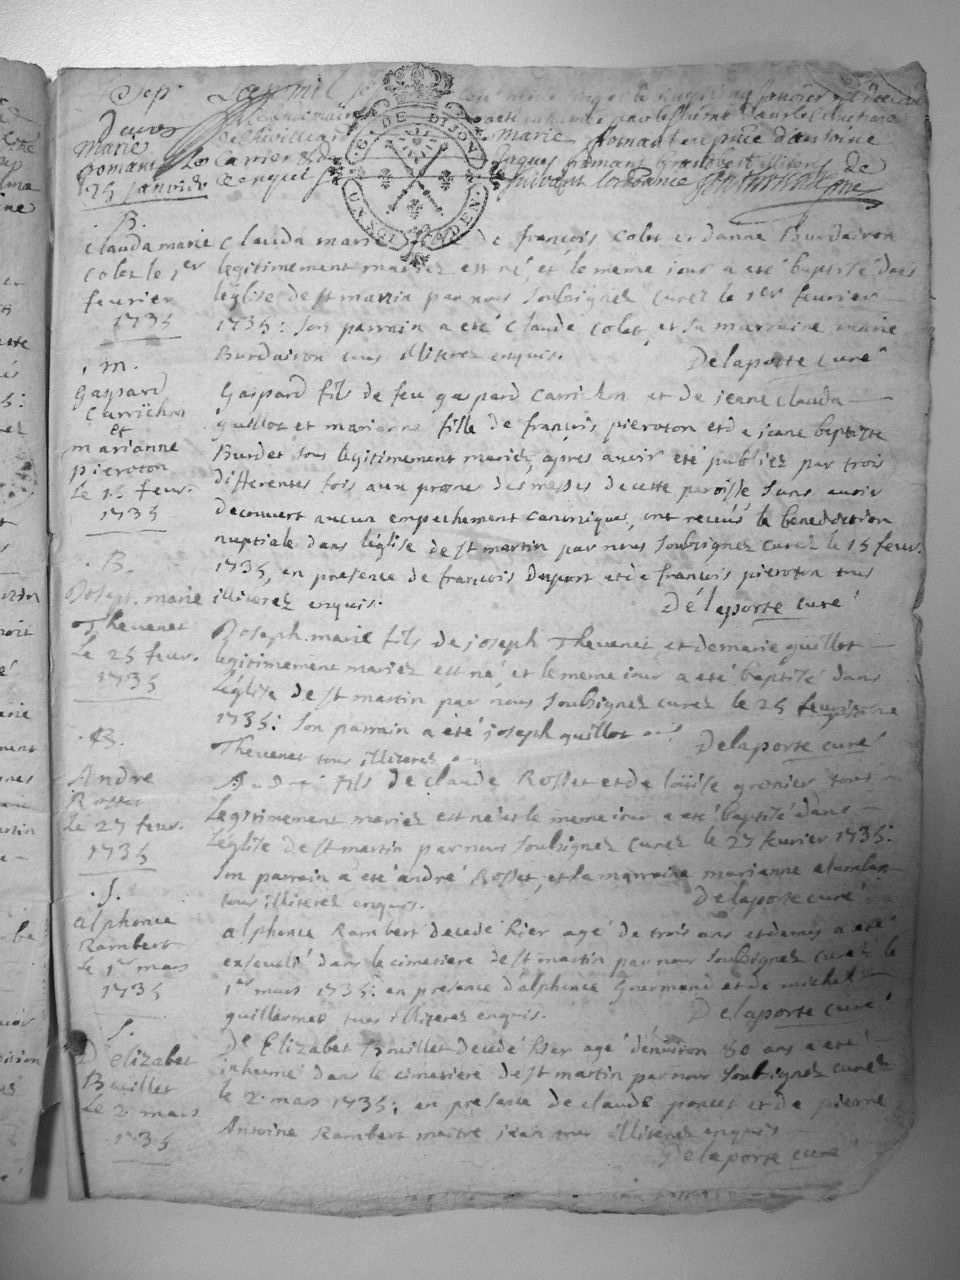 Sep.
Deces
Marie
gomant
25 janvier
L'an mil
Marie gomant
carrier
suivant l'ordonnance
G. DE DIJON
UN SOL
DEN.
B.
Clauda marie
Colet le 1er
feurier
1735
Clauda marie de françois Colet et danne Burdairon
legitimement mariez est né, et le meme iour a eté baptisé dans
leglise de st martin par nous soubsignez curez le 1er feurier
1735: son parrain a eté Claude Colet, et sa marraine marie
Burdairon tous illiterez enquis.
Delaporte curé
m.
Gaspard
Carrichon
et
marianne
pieroton
Le 15 feur.
1735
Gaspard fils de feu gaspard Carrichon et de jeane clauda
guillot et marianne fille de françois pieroton et de jeane baptiste
Burdet tous legitimement mariez, apres auoir eté publiez par trois
differentes fois aux prones des messes de cette paroisse sans auoir
decouvert aucun empechement canonique, ont receus la benediction
nuptiale dans leglise de st martin par nous soubsignez curez le 15 feur.
1735, en presence de françois duport et de françois pieroton tous
illiterez enquis.
Délaporte curé
B.
Joseph. marie
Thevenet
Le 25 feur.
1735
Joseph. marie fils de joseph Thevenet et de marie guillot
legitimement mariez est né, et le meme iour a eté baptisé dans
l'église de st martin par nous soubsignez curez le 25 feurier
1735: son parrain a eté joseph guillot
Thevenet tous illiterez
Delaporte curé
B.
André
Rosset
Le 27 feur.
1735
André fils de claude Rosset et de loüise grenier tous
Legitimement mariez est né et le meme iour a eté baptisé dans
l'église de st martin par nous soubsignez curez le 27 feurier 1735:
son parrain a eté andré Rosset, et sa marraine marianne
tous illiterez enquis.
Delaporte curé
S.
alphonce
Rambert
Le 1er mars
1735
alphonce Rambert decedé hier agé de trois ans et demis a eté
enseueli dans le cimetiere de st martin par nous soubsignez curez le
1er mars 1735: en presence d'alphonce Gourmand et de michel
guillermet tous illiterez enquis.
Delaporte curé
S.
D'elizabet
Bouillet
Le 2. mars
1735
De Elizabet Bouillet decedé hier agé denuiron 80 ans a eté
inhumé dans le cimetiere de st martin par nous soubsignez curez
le 2. mars 1735; en presence de claude poncet et de pierre
Antoine Rambert tous illiterez enquis
Delaporte curé